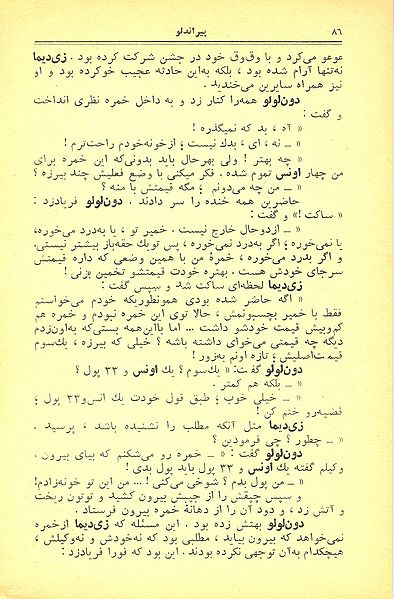 ۸۶
پیراندلو
عوعو می‌کرد و با وق‌وق خود در جشن شرکت کرده بود . زی‌دیما
نه‌تنها آرام شده بود ، بلکه به‌این حادثه عجیب خوکرده بود و او
نیز همراه سایرین می‌خندید .
دون‌لولو همه‌را کنار زد و به داخل خمره نظری انداخت
و گفت :
« آه ، بد که نمیگذره !
« ــ نه ، ای ، بدك نیست ؛ ازخونه‌خودم راحت‌ترم !
« چه بهتر ! ولی بهرحال باید بدونی‌که این خمره برای
من چهار اونس تموم شده . فکر میکنی با وضع فعلیش چند بیرزه ؟
« ــ من چه می‌دونم ؛ مگه قیمتش با منه ؟
حاضرین همه خنده را سر دادند . دون‌لولو فریادزد :
« ساکت !» و گفت :
« ــ ازدوحال خارج نیست . خمیر تو ، یا به‌درد می‌خوره،
یا نمی‌خوره ؛ اگر به‌درد نمی‌خوره ، پس تویك حقه‌باز بیشتر نیستی.
و اگر بدرد می‌خوره ، خمرهٔ من با همین وضعی که داره قیمتش
سرجای خودش هست . بهتره خودت قیمتشو تخمین بزنی !
زی‌دیما لحظه‌ای ساکت شد و سپس گفت :
« اگه حاضر شده بودی همونطوریکه خودم می‌خواستم
فقط با خمیر بچسبونمش ، حالا توی این خمره نبودم و خمره هم
کم‌وبیش قیمت خودشو داشت ... اما بااین‌همه بستی‌که به‌اون‌زدم
دیگه چه قیمتی می‌خوای داشته باشه ؟ خیلی که بیرزه ، یك‌سوم
قیمت‌اصلیش ؛ تازه اونم به‌زور !
دون‌لولو گفت: « یك‌سوم ؟ یك اونس و ۳۳ پول ؟
« ــ بلکه هم کمتر .
« ــ خیلی خوب ؛ طبق قول خودت یك انس‌و۳۳ پول ؛
قضیه‌رو ختم کن !
زی‌دیما مثل آنکه مطلب را نشنیده باشد ، پرسید .
« ــ چطور ؟ چی فرمودین ؟
دون‌لولو گفت : « ــ خمره رو می‌شکنم که بیای بیرون .
وکیلم گفته یك اونس و ۳۳ پول باید پول بدی !
« ــ من پول بدم ؟ شوخی می‌کنی !... من این تو خونه‌زادم!
و سپس چپقش را از جیبش بیرون کشید و توتون ریخت
و آتش زد ، و دود آن را از دهانهٔ خمره بیرون فرستاد .
دون‌لولو بهتش زده بود . این مسئله که زی‌دیما ازخمره
نمی‌خواهد که بیرون بیاید ، مطلبی بود که نه‌خودش و نه‌وکیلش ،
هیچکدام به‌آن توجهی نکرده بودند . این بود که فورا فریادزد :